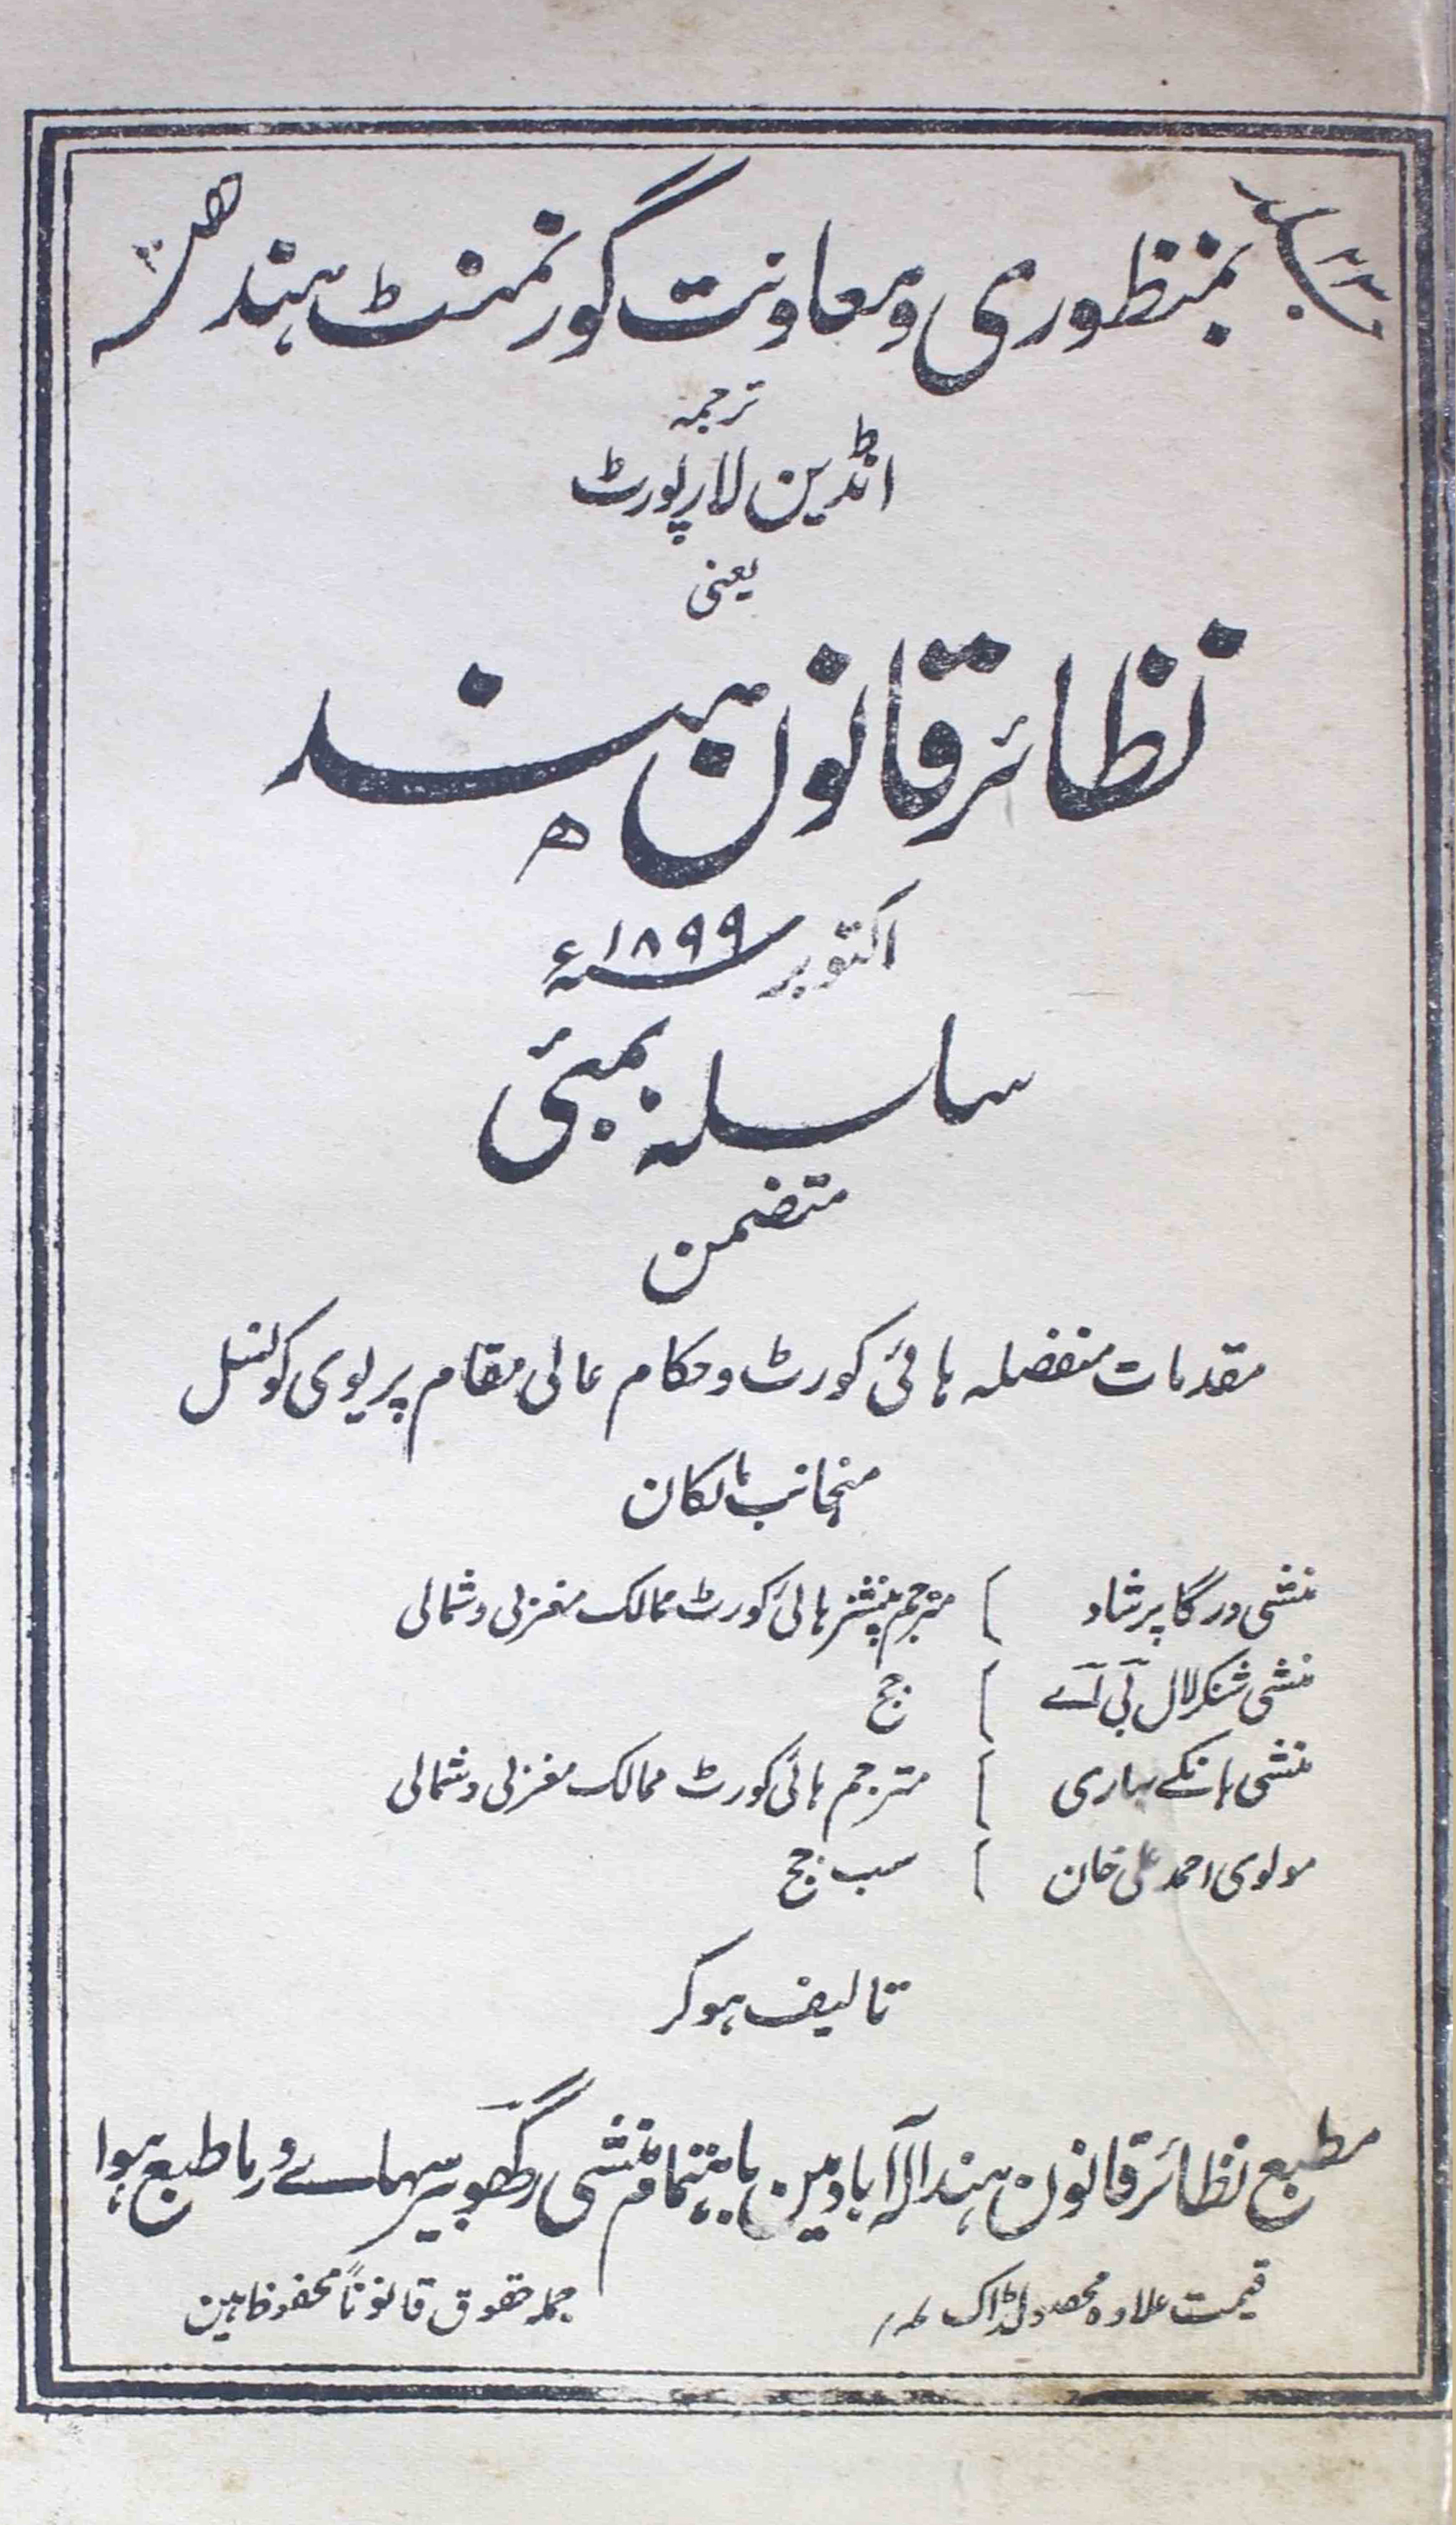 جلد ۲۳
بمنظوری و معاونت گورنمنٹ ہند
ترجمہ
انڈین لا رپورٹ
یعنی
نظائر قانون ہند
اکتوبر ۱۸۹۹ء
سلسلہ بمبئی
متضمن
مقدمات منفصلہ ہائی کورٹ و حکام عالی مقام پریوی کونسل
منجانب مالکان
منشی درگا پرشاد ] مترجم پنشنر ہائی کورٹ ممالک مغربی و شمالی
منشی شنکر لال بی آے ] جج
منشی بانکے بہاری ] مترجم ہائی کورٹ ممالک مغربی و شمالی
مولوی احمد علی خان ] سب جج
تالیف ہوکر
مطبع نظائر قانون ہند الہ آباد مین باہتمام منشی رگھوبیر سہاے ورما طبع ہوا
قیمت علاوہ محصولڈاک
جملہ حقوق قانوناً محفوظ ہین